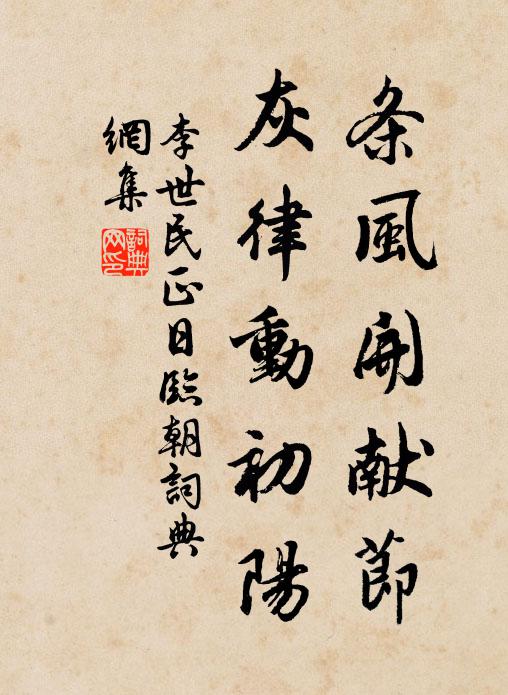 条風開献節
灰律動初陽
李世民正日臨朝詞典
網集
詞典
网印